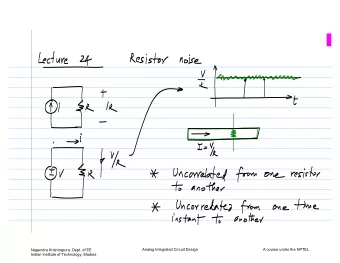 Lecture 24
Resistor noise
V/R
t
I
R
+
IR
−
i
V
R
V/R
I = V/R
* Uncorrelated from one resistor
to another
* Uncorrelated from one time
instant to another
Nagendra Krishnapura, Dept. of EE
Indian Institute of Technology, Madras
Analog Integrated Circuit Design
A course under the NPTEL